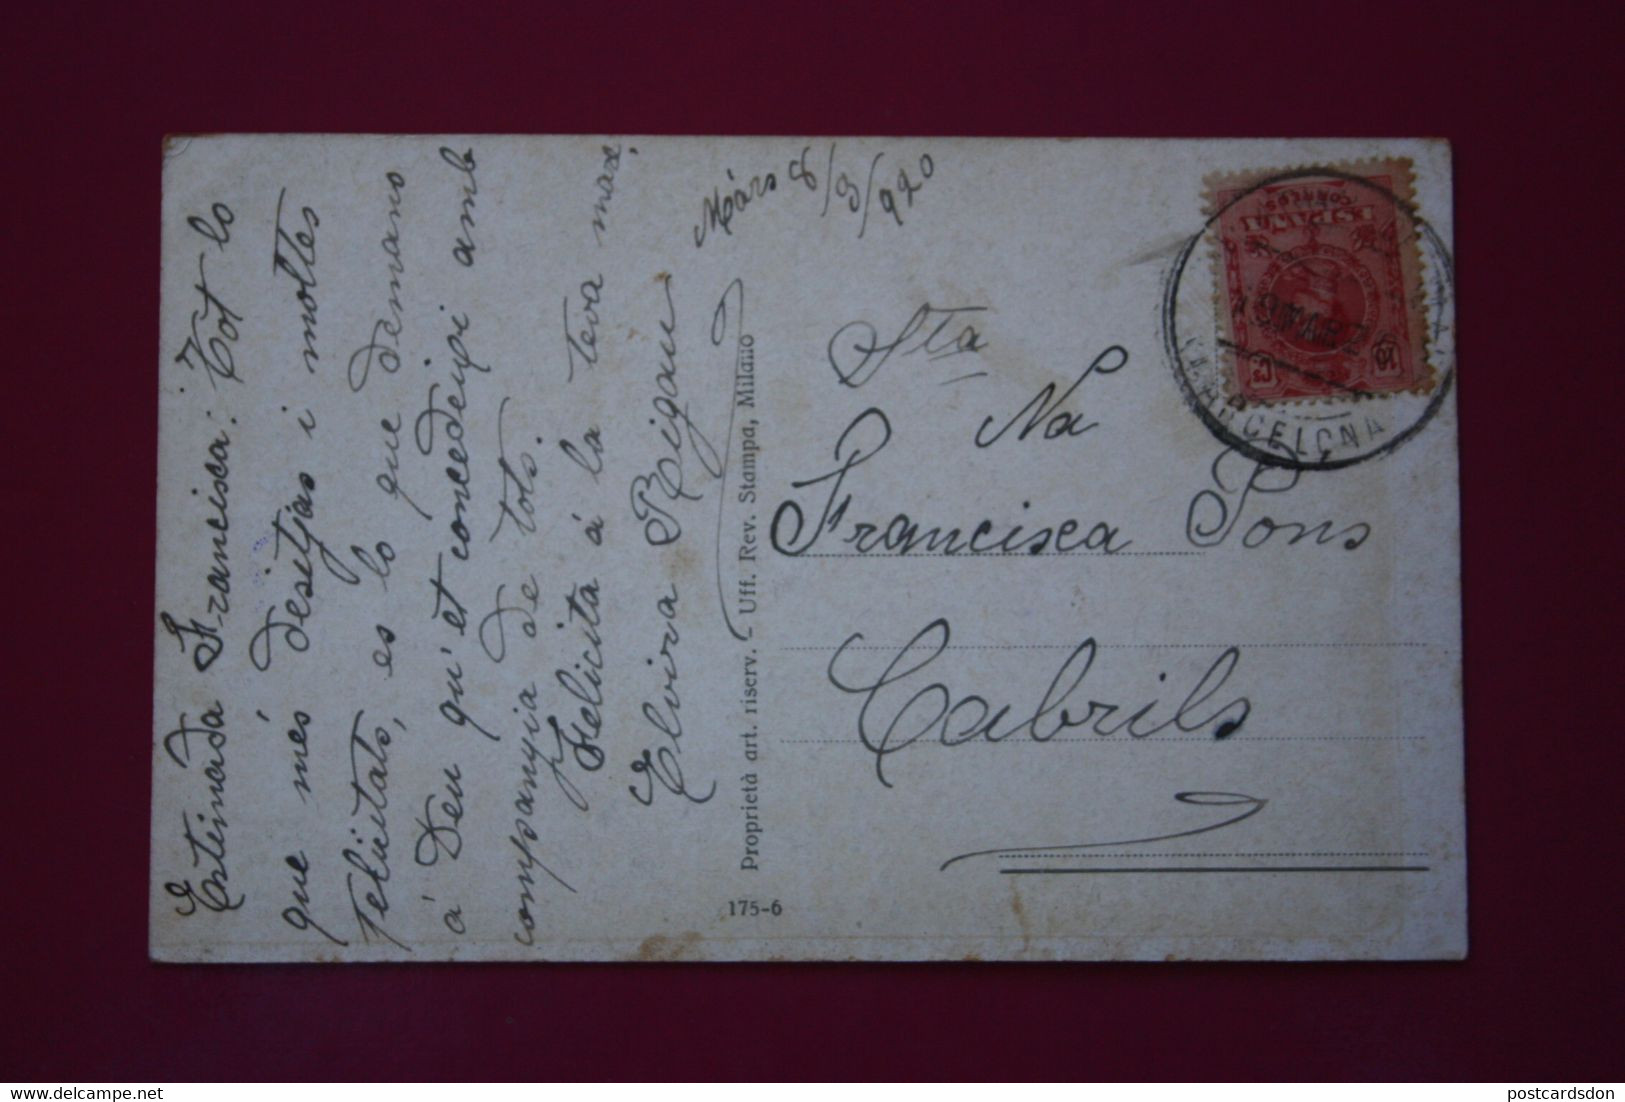 Márs 8/3/920
Estimada Francisca: Tot lo
que mes desitjas i moltes
felicitats, es lo que demano
á Deu qu'et concedeixi amb
companyia de tots.
Felicita á la teva mare.
Elvira Reigau
Proprietà art. riserv. - Uff. Rev. Stampa, Milano
175-6
Sta
Na
Francisca Pons
Cabrils
ESPAÑA
CORREOS
10 Cs
BARCELONA
postcardsdon